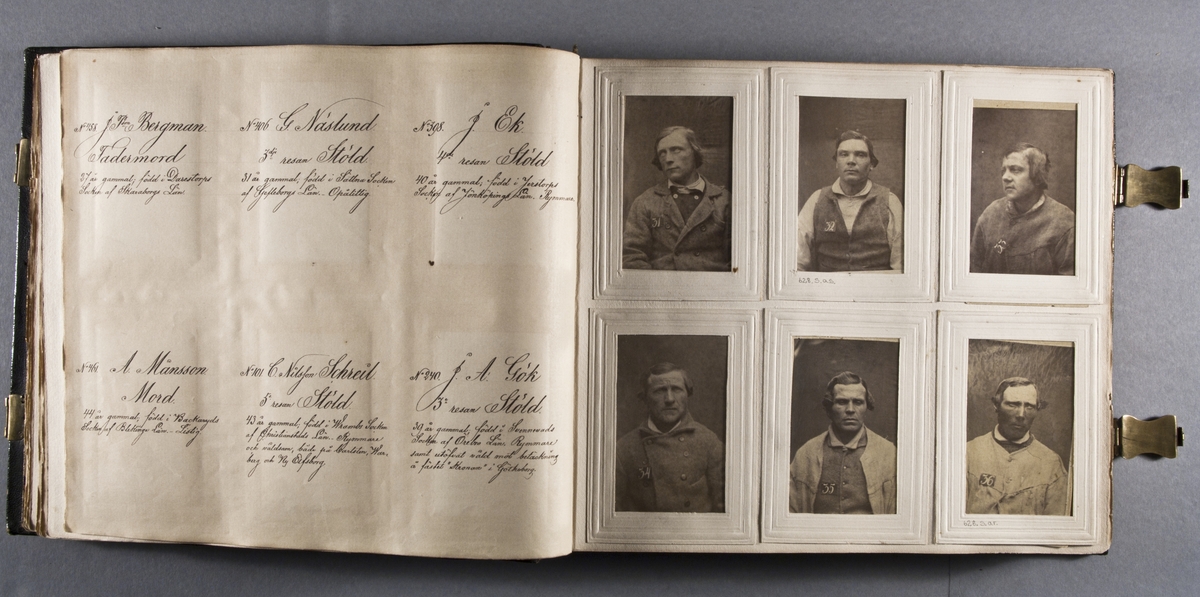 N:o 458. J. P:son Bergman.
Fadermord
37 år gammal, född i Daretorps
Socken af Skaraborgs Län.
N:o 406 G. Näslund
3:dje resan Stöld
31 år gammal, född i Socken
af Gefleborgs Län. Opålitlig
N:o 398. J. Ek
4:de resan Stöld
40 år gammal, född i Socken
af Jönköpings Län. Rymmare
N:o 461 A. Månsson
Mord.
44 år gammal, född i Backaryds
Socken af Blekinge Län. - Listig
N:o 101 C. Nilsson Schreil
5:te resan Stöld
43 år gammal, född i Wrambs Socken
af Christianstads Län. Rymmare
och våldsam, både på Carlsten, War-
berg och Ny Elfsborg.
N:o 240. J. A. Gök
3:e resan Stöld.
39 år gammal, född i Svennevads
Socken af Örebro Län. Rymmare
samt utöfvat våld mot betäckning
å fästet "Kronan" i Götheborg.
31
32
33
628. S. a. 5.
34
35
36
628. S. a. 5.